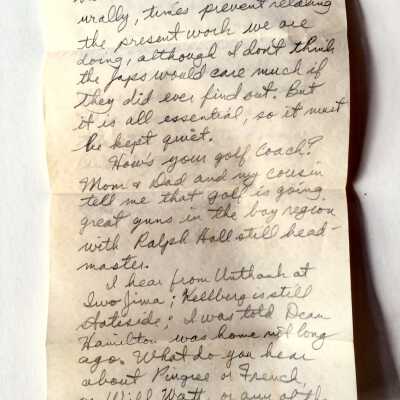 urally, times prevent relating
the present work we are
doing, although I don't think
the Japs would care much if
they did ever find out. But
it is all essential, so it must
be kept quiet.
How's your golf Coach?
Mom & Dad and my cousin
tell me that golf is going
great guns in the bay region
with Ralph Hall still head-
master.
I hear from Unthank at
Iwo Jima; Kellberg is still
stateside; I was told Dean
Hamilton was home not long
ago. What do you hear
about Pingree or French,
or Will Watt, or any of the